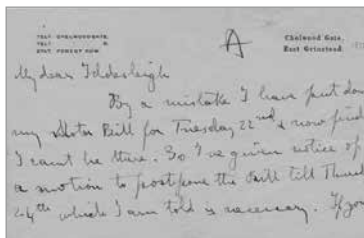 TELT. CHELWOODGATE.
STAT. FOREST ROW.
A
Chelwood Gate,
East Grinstead.
My dear Iddesleigh
By a mistake I have put down
my Motor Bill for Tuesday 22nd & now find
I can't be there. So I've given notice of
a motion to postpone the Bill till Thurs
24th which I am told is necessary. If you